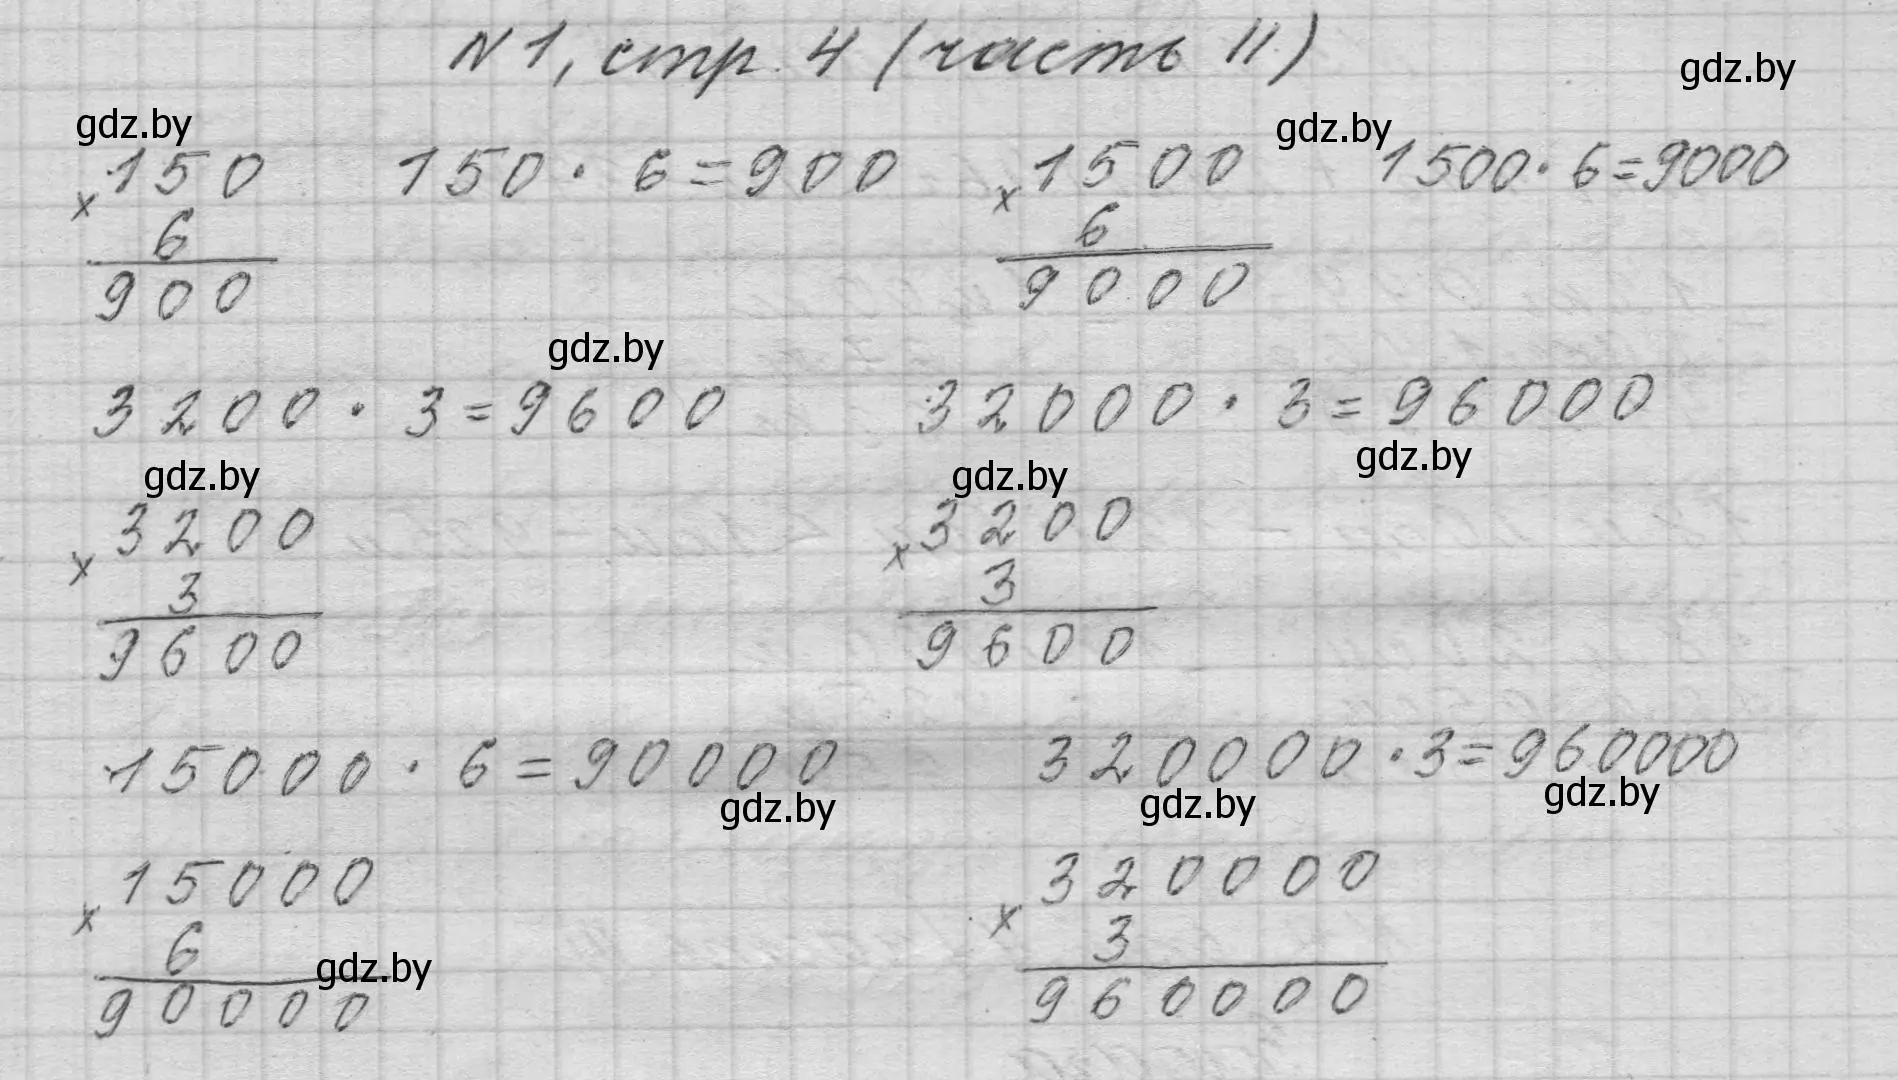 N1, стр. 4 (часть II)
gdz.by
gdz.by
gdz.by
150 150 · 6 = 900 1500 1500 · 6 = 9000
x x
6 6
900 9000
gdz.by
3200 · 3 = 9600 32000 · 3 = 96000
gdz.by
gdz.by
gdz.by
3200 3200
x x
3 3
9600 9600
15000 · 6 = 90000 320000 · 3 = 960000
gdz.by
gdz.by
gdz.by
15000 320000
x x
6 3
gdz.by
90000 960000